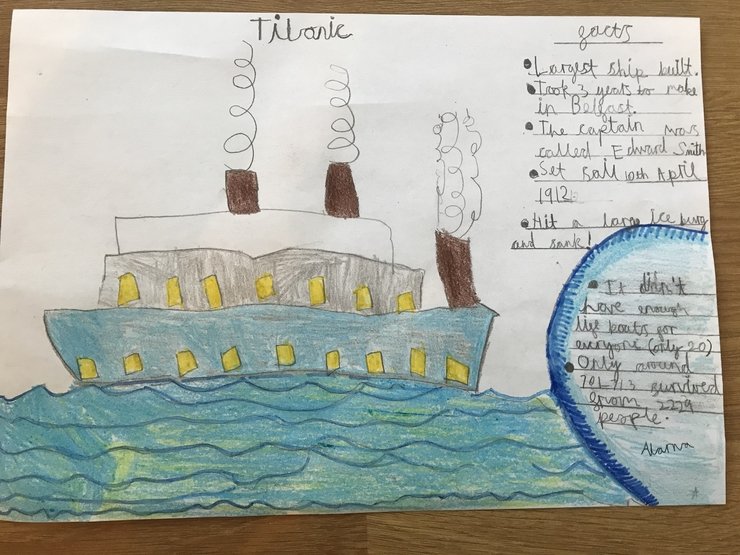 Titanic
facts
Largest ship built.
Took 3 years to make
in Belfast.
The captain was
called Edward Smith
Set Sail 10th April
1912
Hit a large ice burg
and sank!
It didn't
have enough
life boats for
everyone (only 20)
Only around
survived
from 2229
people.
Alarna